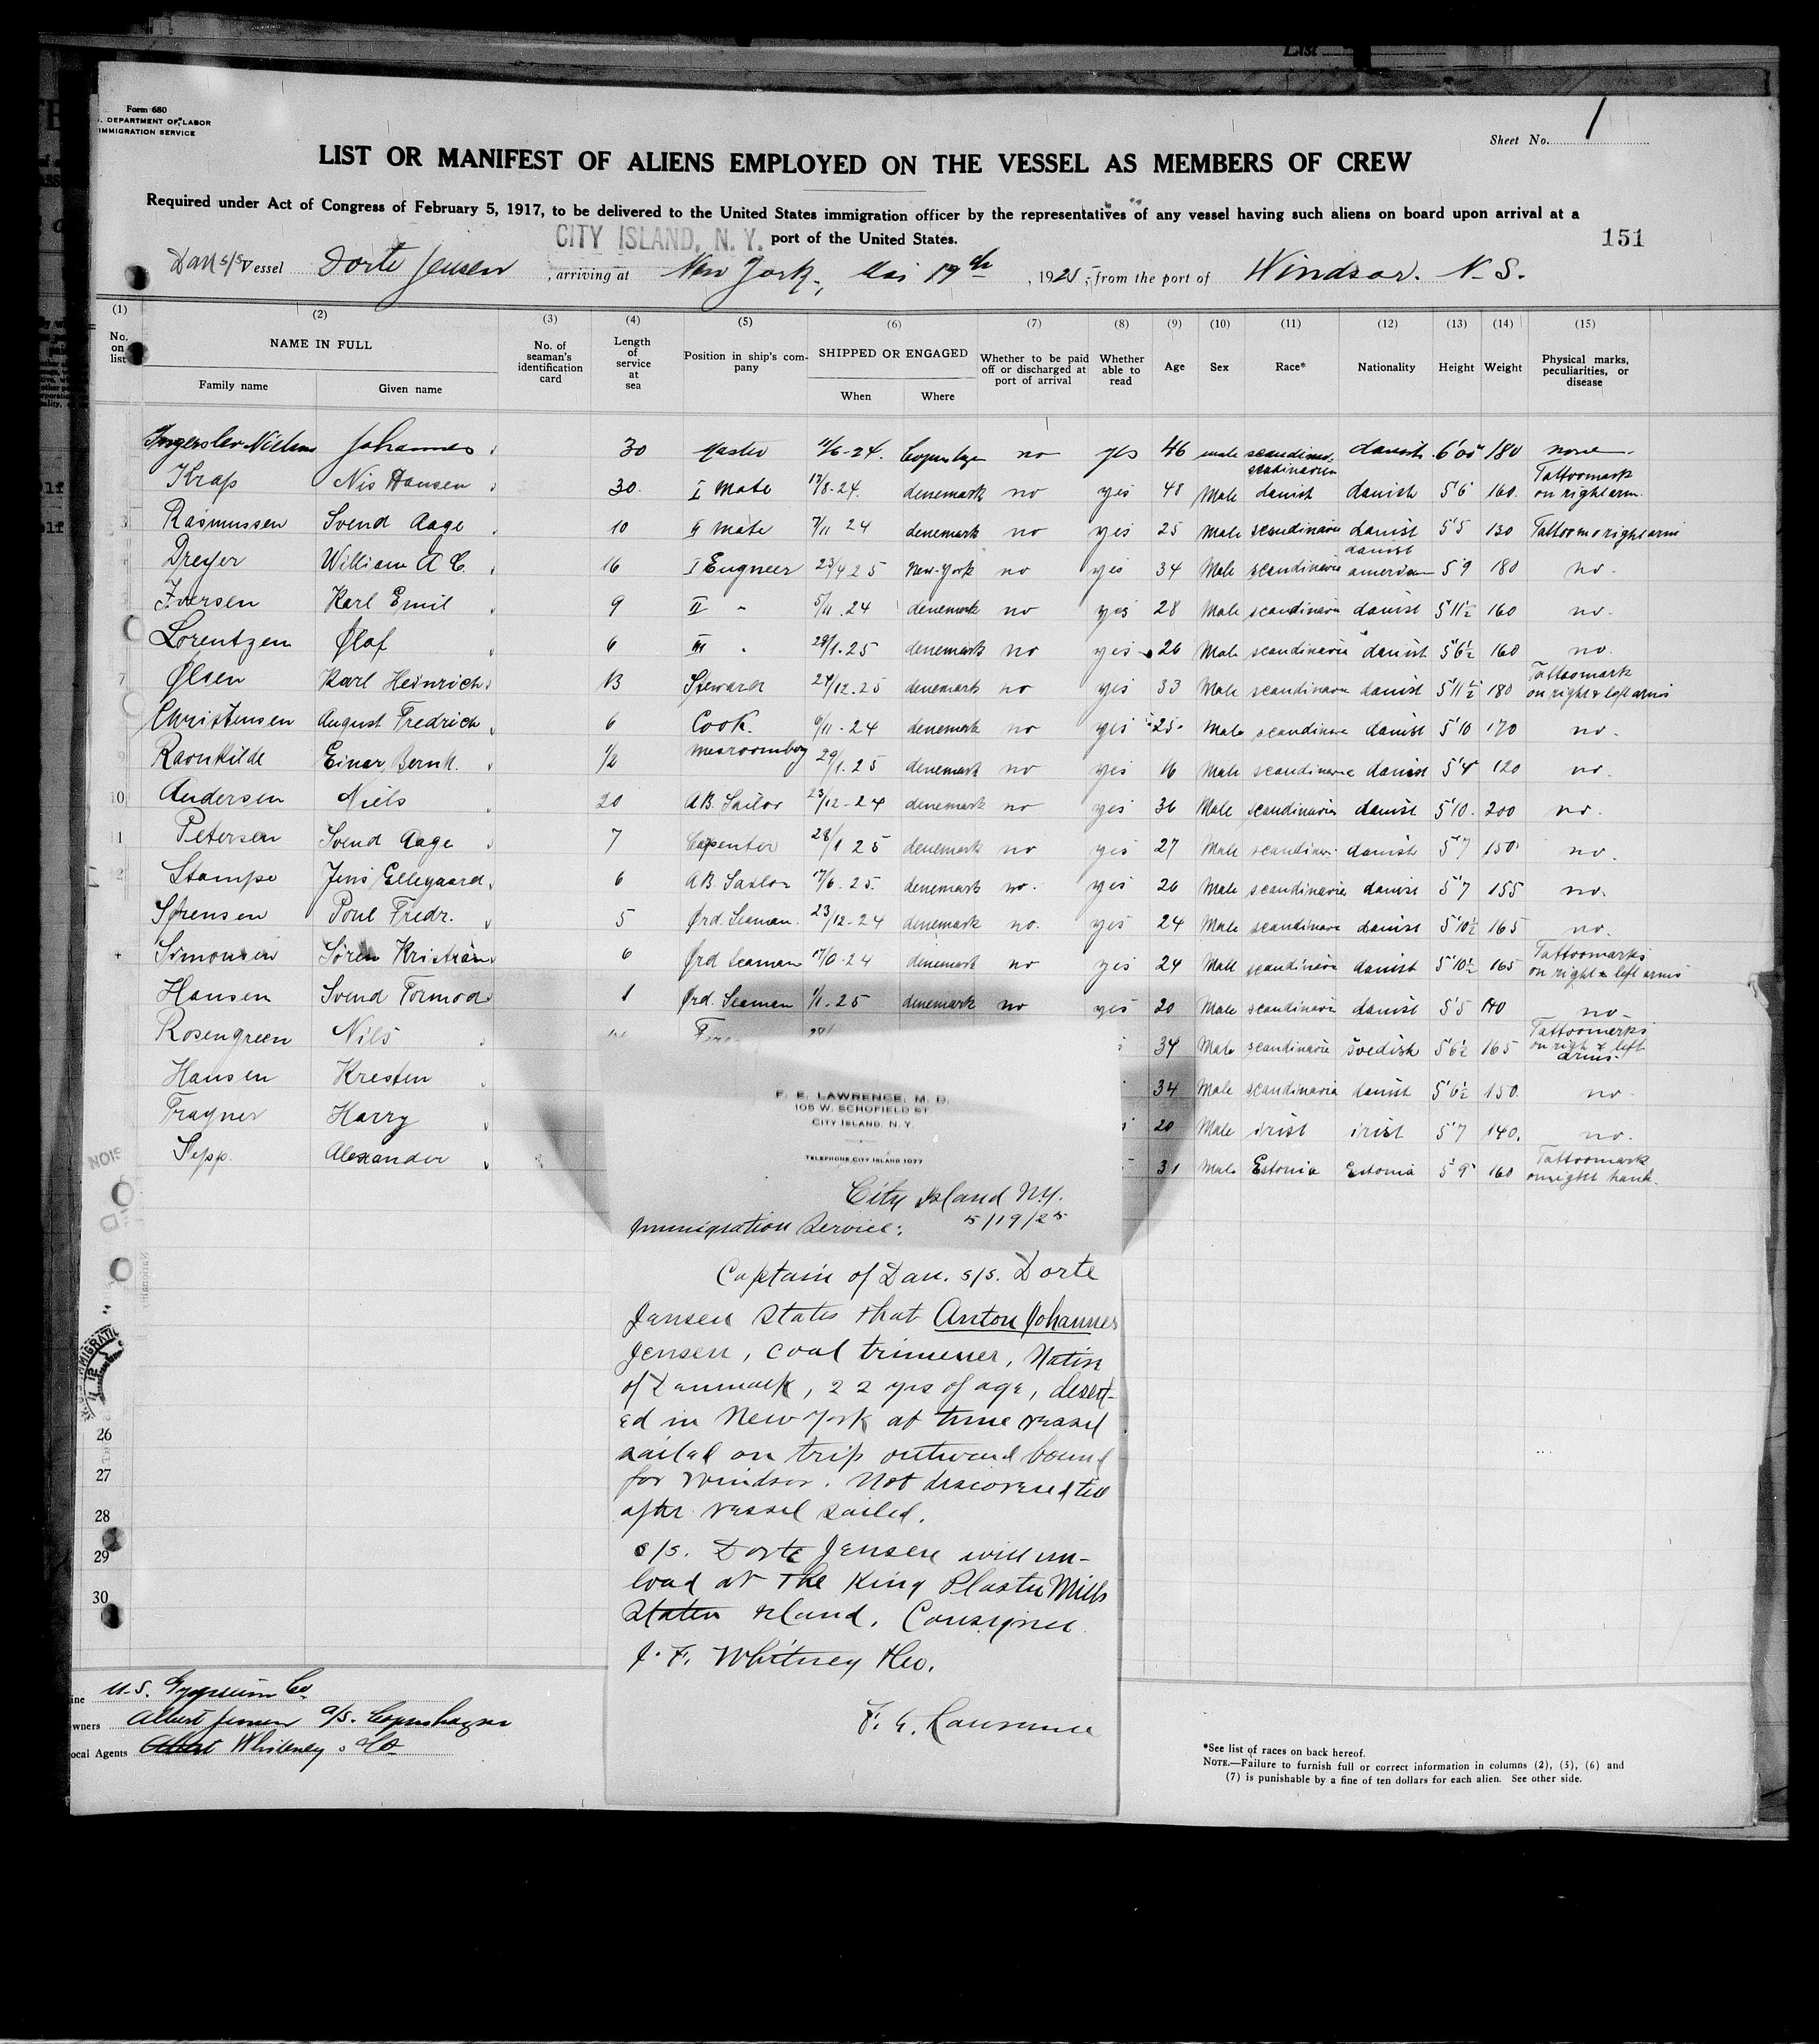 Form 680
DEPARTMENT OF LABOR
IMMIGRATION SERVICE
Sheet No. 1
LIST OR MANIFEST OF ALIENS EMPLOYED ON THE VESSEL AS MEMBERS OF CREW
Required under Act of Congress of February 5, 1917, to be delivered to the United States immigration officer by the representatives of any vessel having such aliens on board upon arrival at a
CITY ISLAND, N. Y. port of the United States.
151
Dan s/s Vessel Dorte Jensen, arriving at New York, Mai 19th, 1925, from the port of Windsor. N.S.
(1) (2) (3) (4) (5) (6) (7) (8) (9) (10) (11) (12) (13) (14) (15)
No. on list NAME IN FULL Family name Given name No. of seaman's identification card Length of service at sea Position in ship's company SHIPPED OR ENGAGED When Where Whether to be paid off or discharged at port of arrival Whether able to read Age Sex Race* Nationality Height Weight Physical marks, peculiarities, or disease
Ingerslev Nielsen Johannes 30 Master 11/6-24. no yes 46 male danish 6'00" 180 none
Krap Nis Hansen 30 I Mate 17/8-24. denemark no yes 48 Male scandinavien danish danish 5'6 160. Tattoomark on right arm.
3 Rasmussen Svend Aage 10 II Mate 7/11 24 denemark no yes 25 Male scandinavia danish 5'5 130 Tattoom right arm
Dreyer William A C. 16 I Engneer 23/4 25 New-York no yes 34 Male scandinavia danish american 5'9 180 no.
Iversen Karl Emil 9 II " 5/11.24 denemark no yes 28 Male scandinavia danish 5'11½ 160 no.
Lorentzen Ølaf 6 III " 29/1.25 denemark no yes 26 Male scandinavia danish 5'6½ 160 no.
7 Ølsen Karl Heinrich 13 Steward 24/12.25 denemark no yes 33 Male scandinavia danish 5'11½ 180 Tattoomark on right & left arms
Christensen August Fredrich 6 Cook. 6/11-24 denemark no yes 25. Male scandinave danish 5'10 170 no.
Ravnkilde Einar, Bernh. ½ messroomboy 29/1.25 denemark no yes 16 Male scandinavia danish 5'4" 120 no.
10 Andersen Niels 20 AB. Sailor 23/12-24 denemark no yes 36 Male scandinavia danish 5'10. 200 no.
11 Petersen Svend Aage 7 Capenter 28/1 25 denemark no yes 27 Male danish 5'7 150 no.
Stampe Jens Ellegaard. 6 AB. Sailor 17/6.25. denemark no. yes 26 Male scandinavia danish 5'7 155 no.
Sørensen Poul Fredr. 5 Ørd. Seaman. 23/12-24 denemark no. yes 24 Male scandinave danish 5'10½ 165 no.
Simonsen Sören Kristian 6 Ørd Seaman 17/0-24 denemark no yes 24 Male scandinavia danish 5'10½ 165 Tattoomarks on right & left arms
Hansen Svend Tormod 1 Ørd. Seaman 1/1-25 denemark no yes 20 Male scandinavia danish 5'5 140 no-
Rosengreen Nils 34 Male scandinavie svedish 5'6½ 165 Tattoomerks on righ & left arms.
Hansen Kresten 34 Male scandinavia danish 5'6½ 150. no-
Traynor Harry 20 Male irish irish 5'7 140. no.
Sepp. Alexander 31 Male Estonia Estonia 5'9" 160 Tattoomark on right hand.
F. E. LAWRENCE, M. D.
105 W. SCHOFIELD ST
CITY ISLAND, N. Y.
TELEPHONE CITY ISLAND 1077
City Island N.Y.
Immigration Service: 5/19/25
Captain of Dan. s/s. Dorte
Jensen states that Anton Johannes
Jensen, coal trimmer, Native
of Danmark, 22 yrs of age, desert-
ed in New York at time vessel
sailed on trip outward bound
for Windsor. Not discovered till
after vessel sailed.
s/s. Dorte Jensen will un-
load at The King Plaster Mills
Staten Island. Consignee
J. F. Whitney & Co.
F. E. Lawrence
26
27
28
29
30
ine U.S. Gypsum Co.
wners Albert Jensen a/s. Copenhagen
ocal Agents Whitney & Co
*See list of races on back hereof.
NOTE.—Failure to furnish full or correct information in columns (2), (5), (6) and
(7) is punishable by a fine of ten dollars for each alien. See other side.